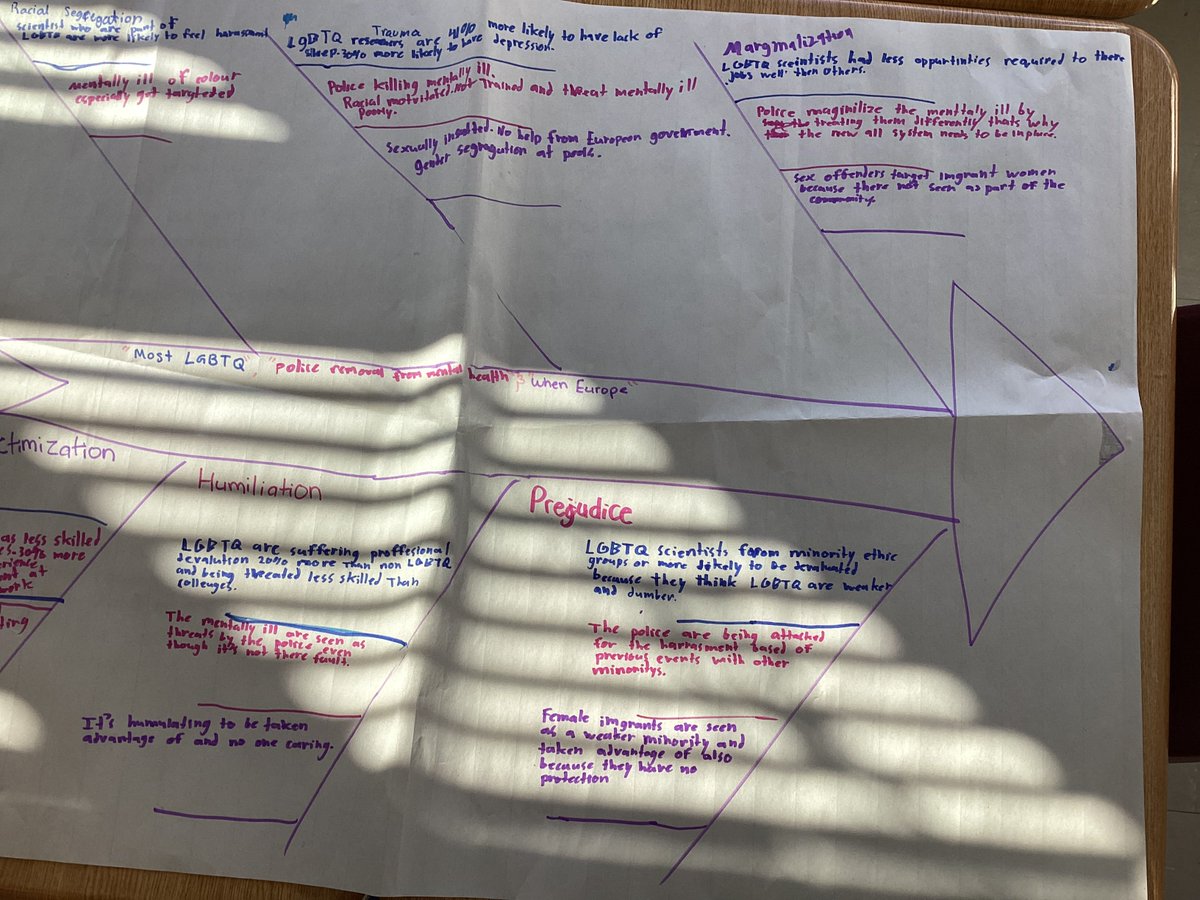 Racial Segregation
scientist who are part of
LGBTQ are more likely to feel harassment
mentally ill of colour
especially got targteded
Trauma
LGBTQ researers are 41% more likely to have lack of
sleep. 30% more likely to have depression.
Police killing mentally ill.
Racial motvitated. Not trained and threat mentally ill
poorly.
Sexually insulted. No help from European government.
Gender segregation at pools.
Marginalization
LGBTQ sceintists had less oppartinties required to there
jobs well then others.
Police maginilize the menttaly ill by
treating them differently thats why
the new all system needs to be inplace.
Sex offenders target imgrant women
because there not seen as part of the
community.
"Most LGBTQ", "police removal from mental health", "When Europe"
ctimization
as less skilled
es. 30% more
rience
ent at
work
ting
Humiliation
LGBTQ are suffering proffesional
devalution 20% more than non LGBTQ
and being threated less skilled than
colleuges.
The mentally ill are seen as
threats by the police even
though it's not there fault.
It's humulating to be taken
advantage of and no one caring.
Prejudice
LGBTQ scientists from minority ethic
groups or more likely to be devaluated
because they think LGBTQ are weaker
and dumber.
The police are being attached
for the harrasment based of
previous events with other
minoritys.
Female imgrants are seen
as a weaker minority and
taken advantage of also
because they have no
protection